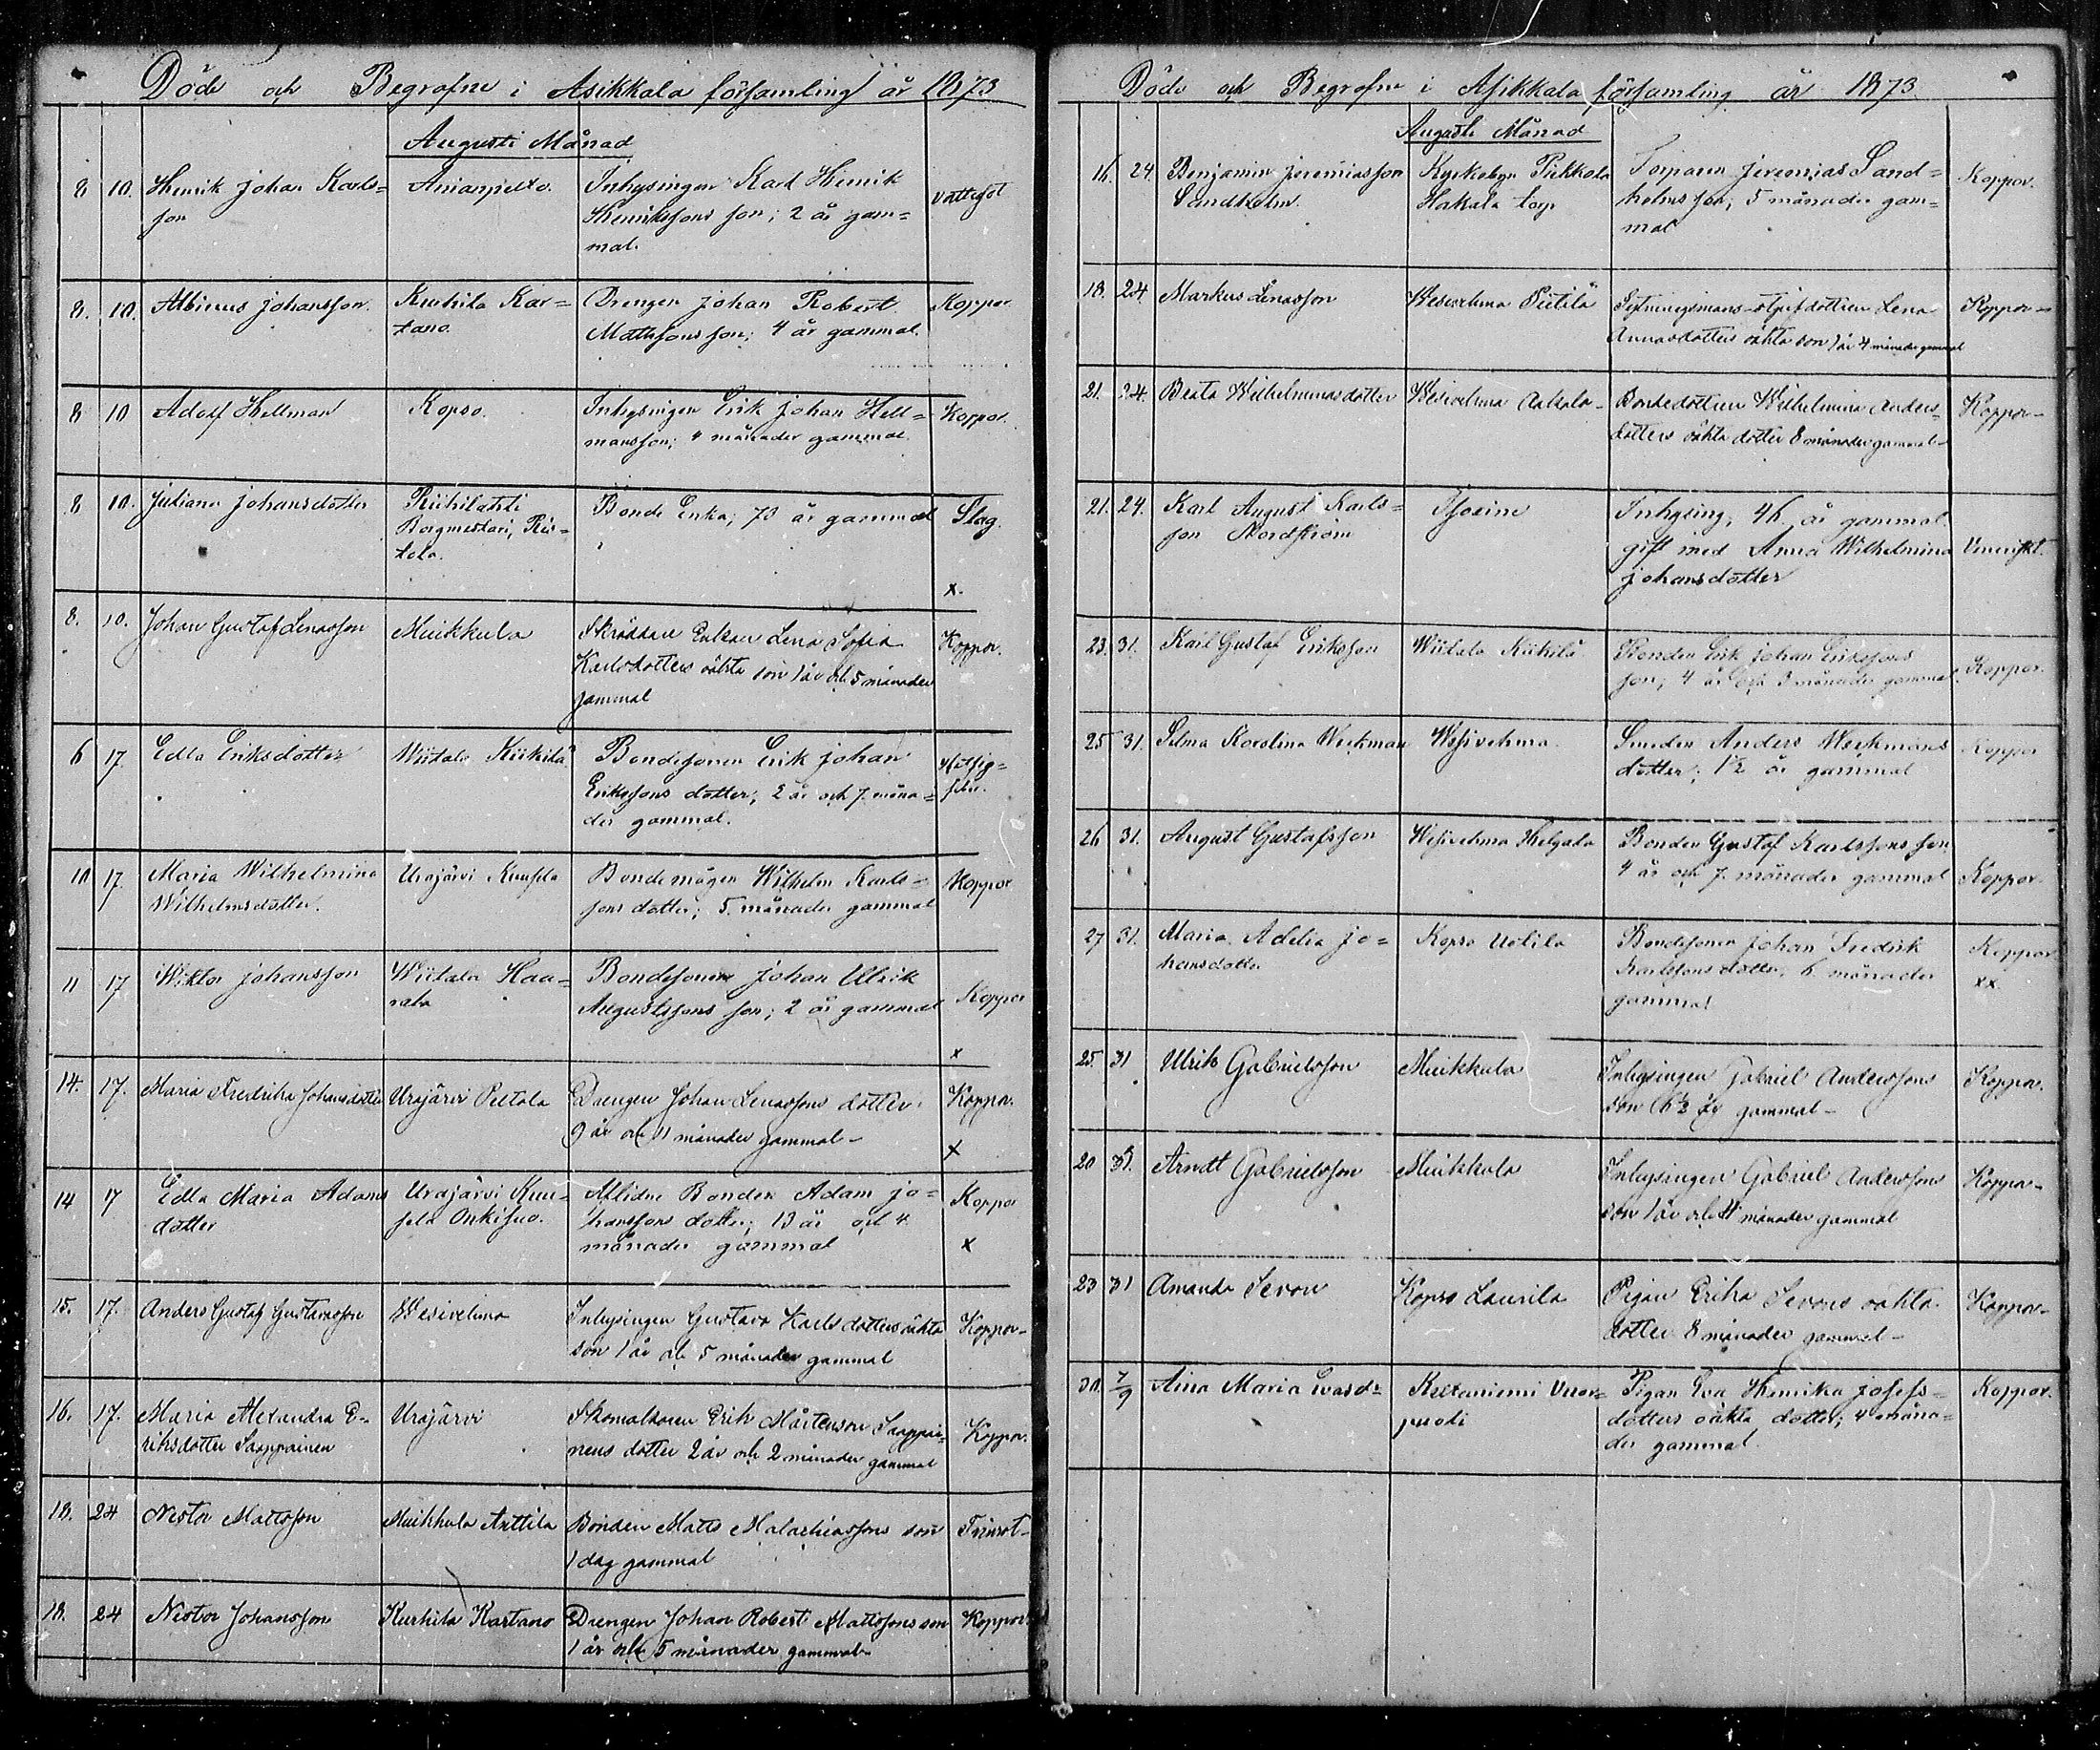 Döde och Begrafne i Asikkala församling år 1873
Augusti Månad
8 10. Henrik Johan Karls= Anianpelto. Inhysingen Karl Henrik
son Henrikssons son; 2 år gam= vattusot
mal.
8. 10. Albinus Johansson. Kurhila Kar= Drengen Johan Robert Koppor
tano. Mattssons son; 4 år gammal.
8 10 Adolf Hellman Kopso. Inhysingen Erik Johan Hell= Koppor.
mans son; 4 månader gammal.
8 10. Juliana Johansdotter Riihilahti Bonde Enka; 70 år gammal Slag.
Borgmestari,
x.
8. 10. Johan Gustaf Lenasson Muikkula Skräddare Enkan Lena Sofia Koppor.
Karlsdotters oäkta son 1 år och 5 månader
gammal
6 17. Edla Eriksdotter Wiitala Kiikilä Bondesonen Erik Johan
Erikssons dotter; 2 år och 7 måna=
der gammal.
10 17. Maria Wilhelmina Urajärvi Bondemågen Wilhelm Karls= Koppor
Wilhelmsdotter. sons dotter; 5 månader gammal
11 17 Wiktor Johansson Wiitala Haa= Bondesonen Johan Ulrik Koppor
rala Augustssons son; 2 år gammal
x
14. 17. Maria Fredrika Johansdotter Urajärvi Drengen Johan Lenassons dotter Koppor.
9 år och 11 månader gammal - x
14 17 Edla Maria Adams Urajärvi Kuu= Aflidne Bonden Adam Jo= Koppor
dotter sela Onkisuo. hanssons dotter; 13 år och 4
månader gammal x
15. 17. Anders Gustaf Gustavasson Wesivehma Inhysingen Gustava Karlsdotters oäkta Koppor-
son 1 år och 5 månader gammal
16. 17. Maria Alexandra E- Urajärvi Skomakaren Erik Mårtenson Saappai= Koppor.
riksdotter Saappainen nens dotter 2 år och 2 månader gammal
18. 24 Nestor Mattsson Muikkula Anttila Bonden Matts Malachiassons son
1 dag gammal
18. 24 Nestor Johansson Kurhila Kartano Drengen Johan Robert Mattssons son Koppor.
1 år och 5 månader gammal-
Döde och Begrafne i Asikkala församling år 1873.
Augusti Månad
16. 24. Benjamin Jeremiasson Kyrkobyn Pirkkola Torparen Jeremias Sand= Koppor.
Sandholm. Hakala torp holms son; 5 månader gam=
mal
18. 24 Markus Lenasson Wesivehma Lena Koppor-
Annasdotters oäkta son 1 år 4 månader gammal
21. 24. Beata Wilhelminasdotter Wesivehma Bondedottren Wilhelmina Anders- Koppor-
dotters oäkta dotter 8 månader gammal-
21. 24. Karl August Karls= Inhysing, 46 år gammal.
son Nordström gift med Anna Wilhelmina Veneriskt.
Johansdotter
23. 31. Karl Gustaf Eriksson Wiitala Kiikilä Bonden Erik Johan Erikssons
son; 4 år och 8 månader gammal. Koppor.
25 31. Selma Karolina Werkman Wesivehma. Smeden Anders Werkmans Koppor
dotter; 1½ år gammal
26 31. August Gustafsson Wesivehma Helgala Bonden Gustaf Karlssons son
4 år och 7 månader gammal Koppor.
27 31. Maria Adelia Jo= Kopso Uotila Bondesonen Johan Fredrik Koppor
hansdotter Karlssons dotter, 6 månader xx.
gammal
25. 31 Ulrik Gabrielsson Muikkula Inhysingen Gabriel Anderssons Koppor.
son 6½ år gammal-
20 31. Arvdt Gabrielsson Muikkula Inhysingen Gabriel Anderssons Koppor-
son 1 år och 11 månader gammal
23 31 Amanda Sevon Kopso Laurila Pigan Erika Sevons oäkta Koppor-
dotter 8 månader gammal-
30. 7/9 Aina Maria Evasd= Keltaniemi Pigan Eva Henrika Josefs= Koppor.
dotters oäkta dotter; 4 måna=
der gammal.